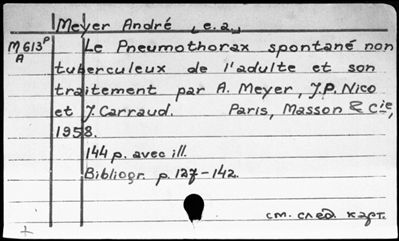 Meyer André e.a.
M613P
A
Le Pneumothorax spontané non
tuberculeux de l'adulte et son
traitement par A. Meyer, J.P. Nico
et J. Carraud. Paris, Masson & Cie,
1958.
144 p. avec ill.
Bibliogr. p. 127-142.
см. след карт.